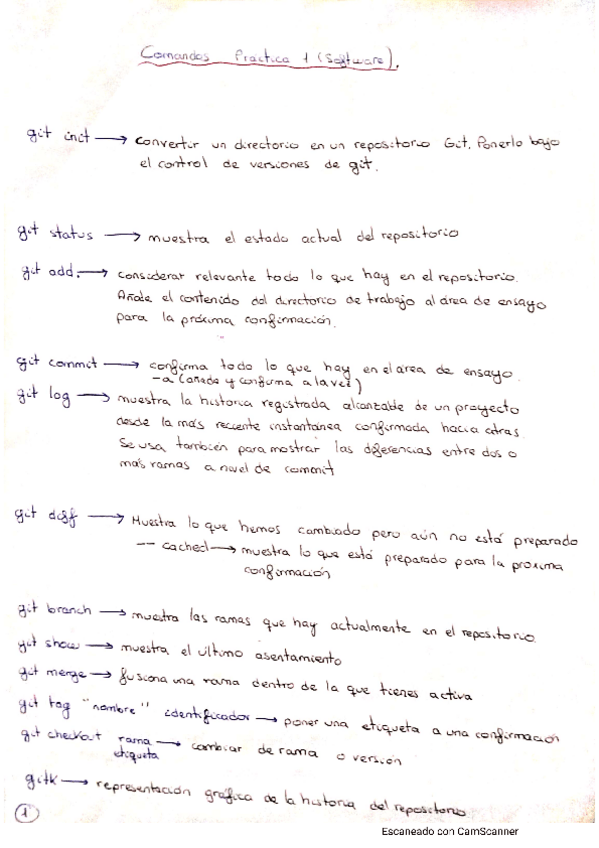 Comandos Práctica 1 (Software).
git init → Convertir un directorio en un repositorio Git. Ponerlo bajo
el control de versiones de git.
git status → muestra el estado actual del repositorio
git add. → considerar relevante todo lo que hay en el repositorio.
Añade el contenido del directorio de trabajo al área de ensayo
para la próxima confirmación.
git commit → confirma todo lo que hay en el área de ensayo.
-a (añade y confirma a la vez)
git log → muestra la historia registrada alcanzable de un proyecto
desde la más reciente instantánea confirmada hacia atrás.
Se usa también para mostrar las diferencias entre dos o
más ramas a nivel de commit
git diff → Muestra lo que hemos cambiado pero aún no está preparado
-- cached → muestra lo que está preparado para la próxima
confirmación
git branch → muestra las ramas que hay actualmente en el repositorio.
git show → muestra el último asentamiento
git merge → fusiona una rama dentro de la que tienes activa
git tag "nombre" identificador → poner una etiqueta a una confirmación
git checkout rama → cambiar de rama o versión
etiqueta
gitk → representación gráfica de la historia del repositorio.
1
Escaneado con CamScanner